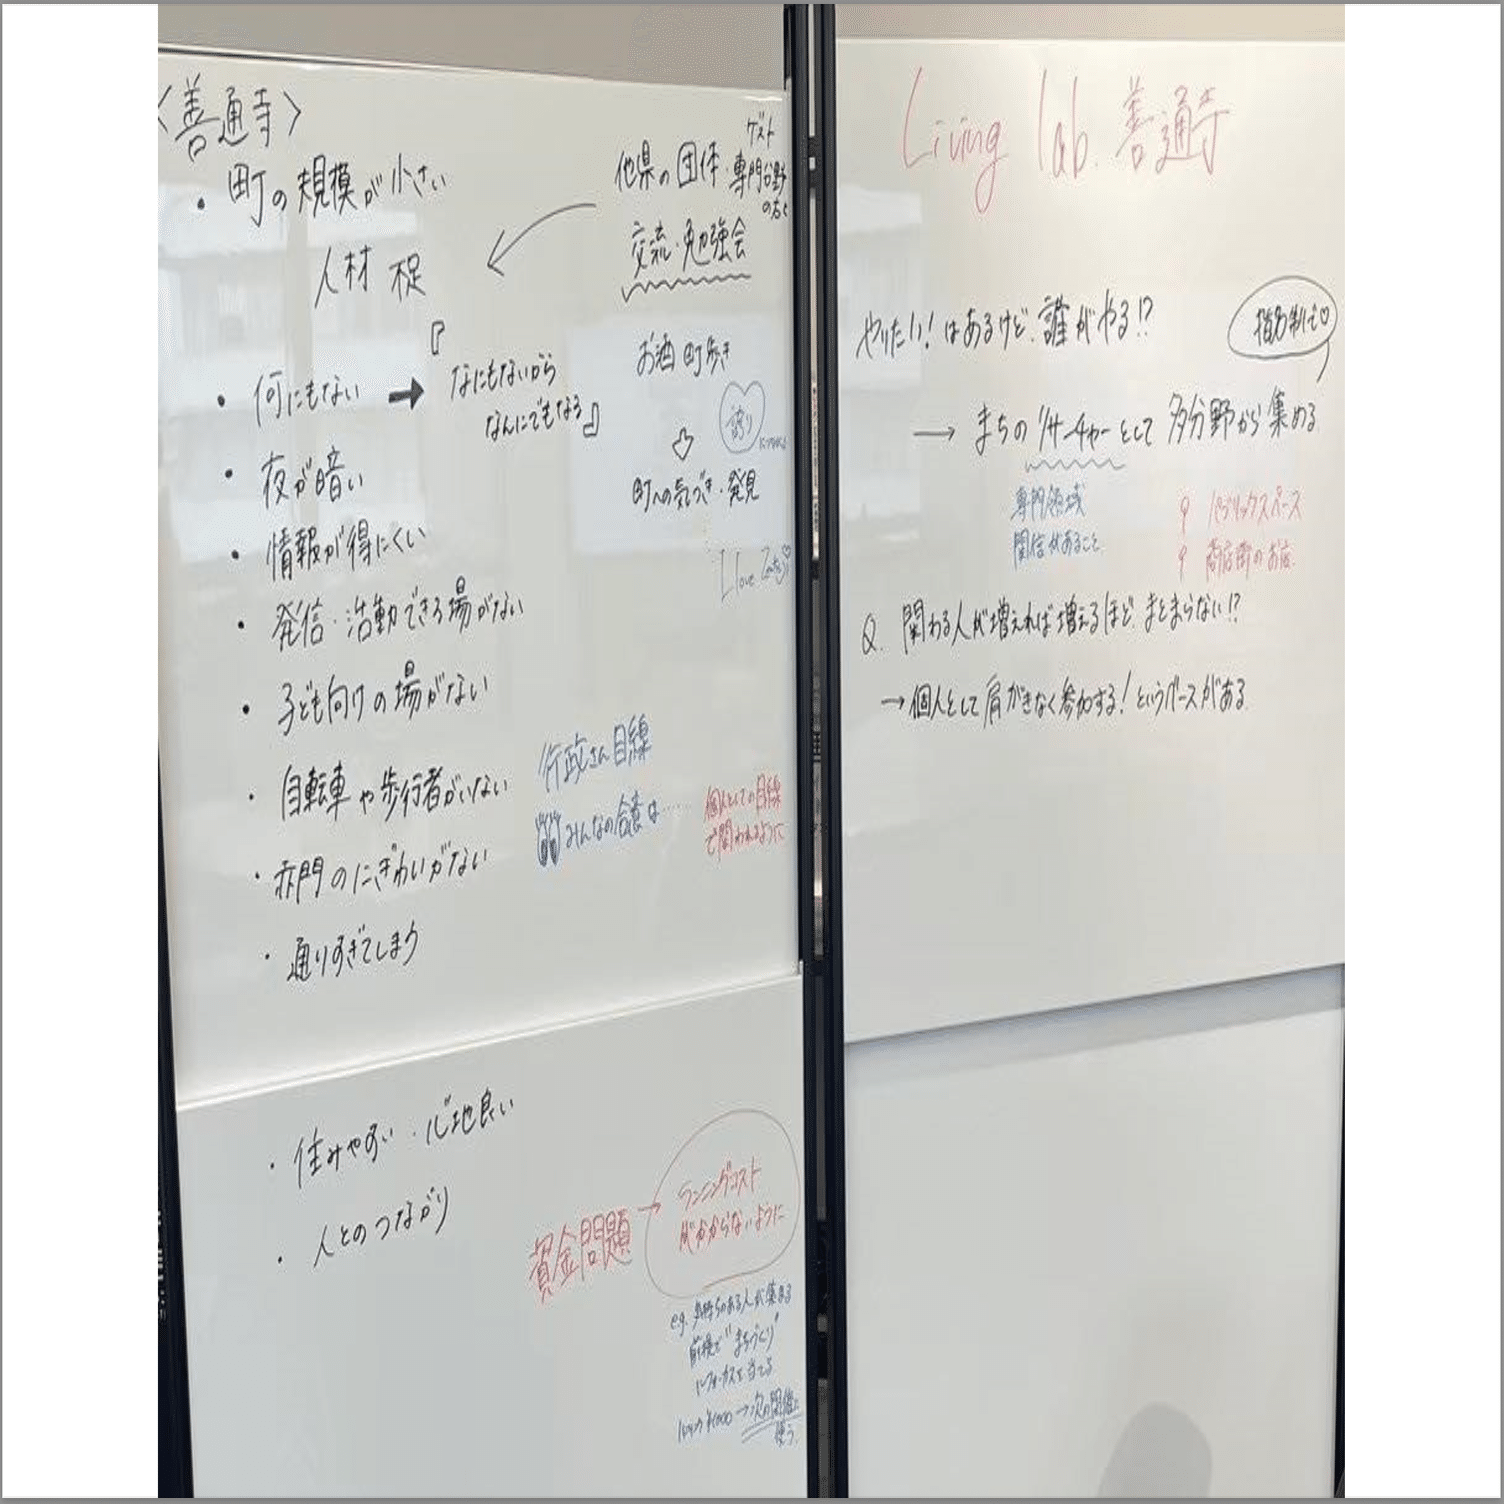 〈善通寺〉
・町の規模が小さい
人材不足
他県の団体・
ゲスト
専門分野
の方と
交流・勉強会
・何にもない → 『なにもないから
なんにでもなる』
お酒 町歩き
誇り
町への気づき・発見
I love Zentsuji
・夜が暗い
・情報が得にくい
・発信・活動できる場がない
・子ども向けの場がない
・自転車や歩行者がいない
・赤門のにぎわいがない
・通りすぎてしまう
行政さん目線
みんなの合意は……
個人としての目線
で関われるように
・住みやすい・心地良い
・人とのつながり
資金問題 →
ランニングコスト
がかからないように
e.g. 気持ちのある人が集まる
前提で"まちづくり"
にフォーカスを当てる
→次の開催に
使う。
Living lab. 善通寺
やりたい!はあるけど、誰がやる!?
指名制で♡
→ まちのリサーチャーとして多分野から集める
専門領域
関信があること
パブリックスペース
商店街のお店
Q. 関わる人が増えれば増えるほど、まとまらない!?
→個人として肩がきなく参加する!というベースがある